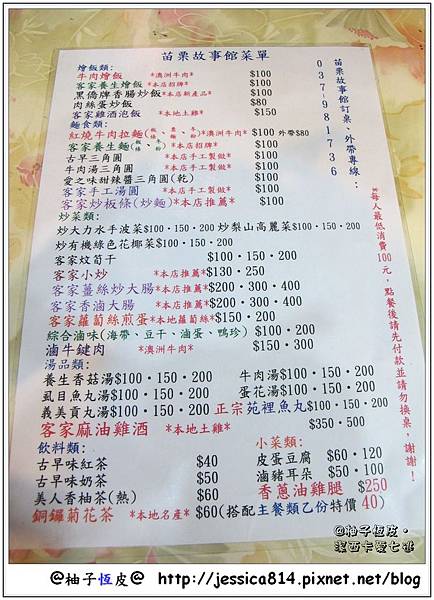 苗栗故事館菜單
苗栗故事館訂桌、外帶專線：
037-981736
*每人最低消費100元，點餐後請先付款並請勿換桌，謝謝！
燴飯類:
牛肉燴飯 *澳洲牛肉* $100
客家養生燴飯 *本店招牌* $100
黑僑牌香腸炒飯 *本店新產品* $100
肉絲蛋炒飯 $80
客家雞酒泡飯 *本地土雞* $150
麵食類:
紅燒牛肉拉麵 *澳洲牛肉* $100 外帶$80
客家養生麵 *本店招牌* $100
古早三角圓 *本店手工製做* $100
牛肉湯三角圓 *本店手工製做* $100
愛之味甜辣醬三角圓(乾) $100
客家手工湯圓 *本店手工製做* $100
客家炒板條(炒麵) *本店推薦* $100
炒菜類:
炒大力水手波菜$100·150·200 炒梨山高麗菜$100·150·200
炒有機綠色花椰菜$100·150·200
客家炆筍干 $100·150·200
客家小炒 *本店推薦* $130·250
客家薑絲炒大腸 *本店推薦* $200·300·400
客家香滷大腸 *本店推薦* $200·300·400
客家蘿蔔絲煎蛋 *本地蘿蔔絲* $150·200
綜合滷味(海帶、豆干、滷蛋、鴨珍) $100·200
滷牛鍵肉 *澳洲牛肉* $150·300
湯品類:
養生香菇湯$100·150·200 牛肉湯$100·150·200
虱目魚丸湯$100·150·200 蛋花湯$100·150·200
義美貢丸湯$100·150·200 正宗苑裡魚丸$100·150·200
客家麻油雞酒 *本地土雞* $350·500
飲料類:
古早味紅茶 $40
古早味奶茶 $50
美人香柚茶(熱) $60
銅鑼菊花茶 *本地名產* $60(搭配主餐類乙份特價 40)
小菜類:
皮蛋豆腐 $60·120
滷豬耳朵 $50·100
香蔥油雞腿 $250
@柚子恆皮·
潔西卡愛七逃
@柚子恆皮@ http://jessica814.pixnet.net/blog